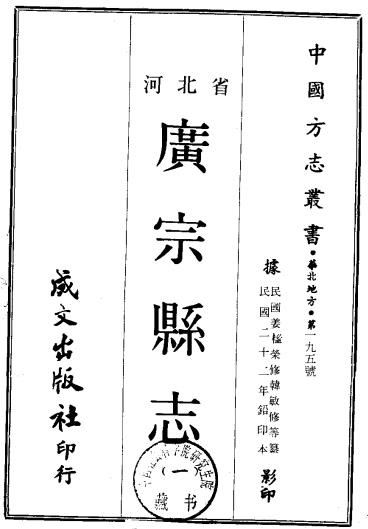 中國方志叢書・華北地方・第一九五號
據
民國姜榓榮修韓敏修等纂
民國二十二年鉛印本
影印
河北省
廣宗縣志
成文出版社印行
(一)
藏书